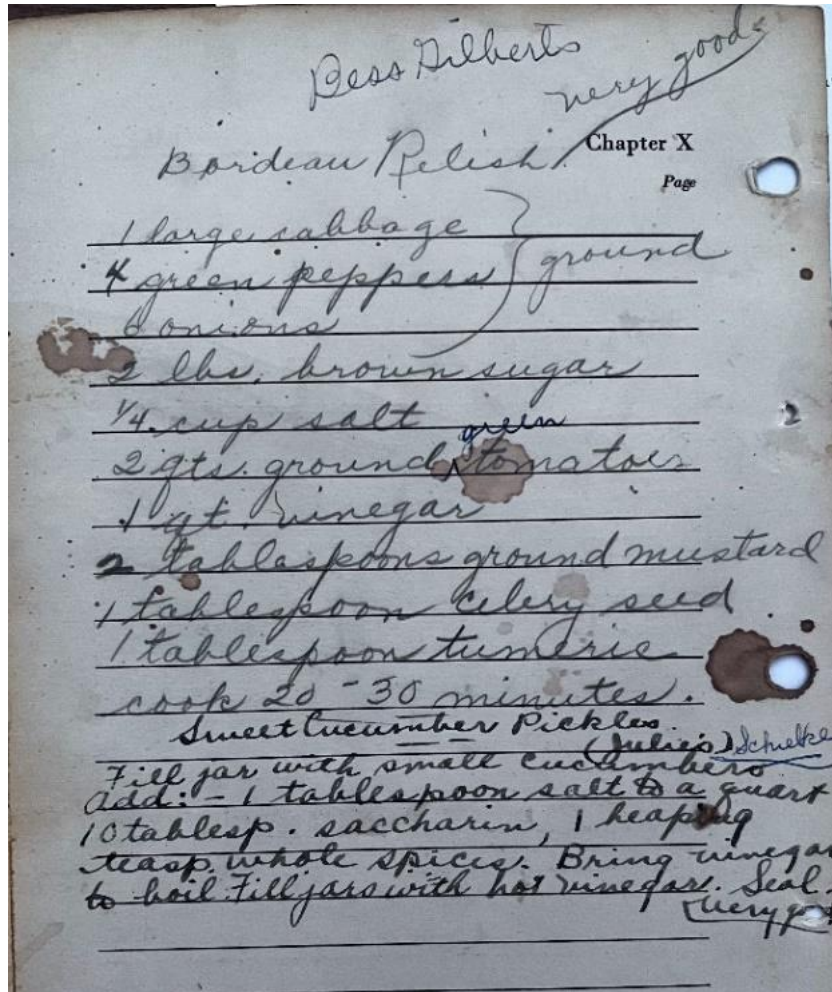 Bess Gilberts
very good
Chapter X
Bordeau Relish
Page
1 large cabbage
4 green peppers
ground
6 onions
2 lbs. brown sugar
1/4 cup salt
green
2 qts. ground tomatoes
1 qt. vinegar
2 tablespoons ground mustard
1 tablespoon celery seed
1 tablespoon tumeric
cook 20 - 30 minutes.
Sweet Cucumber Pickles
(Julie's)
Fill jar with small cucumbers
add: - 1 tablespoon salt to a quart
10 tablesp. saccharin, 1 heaping
teasp. whole spices. Bring vinegar
to boil. Fill jars with hot vinegar. Seal.
very
2